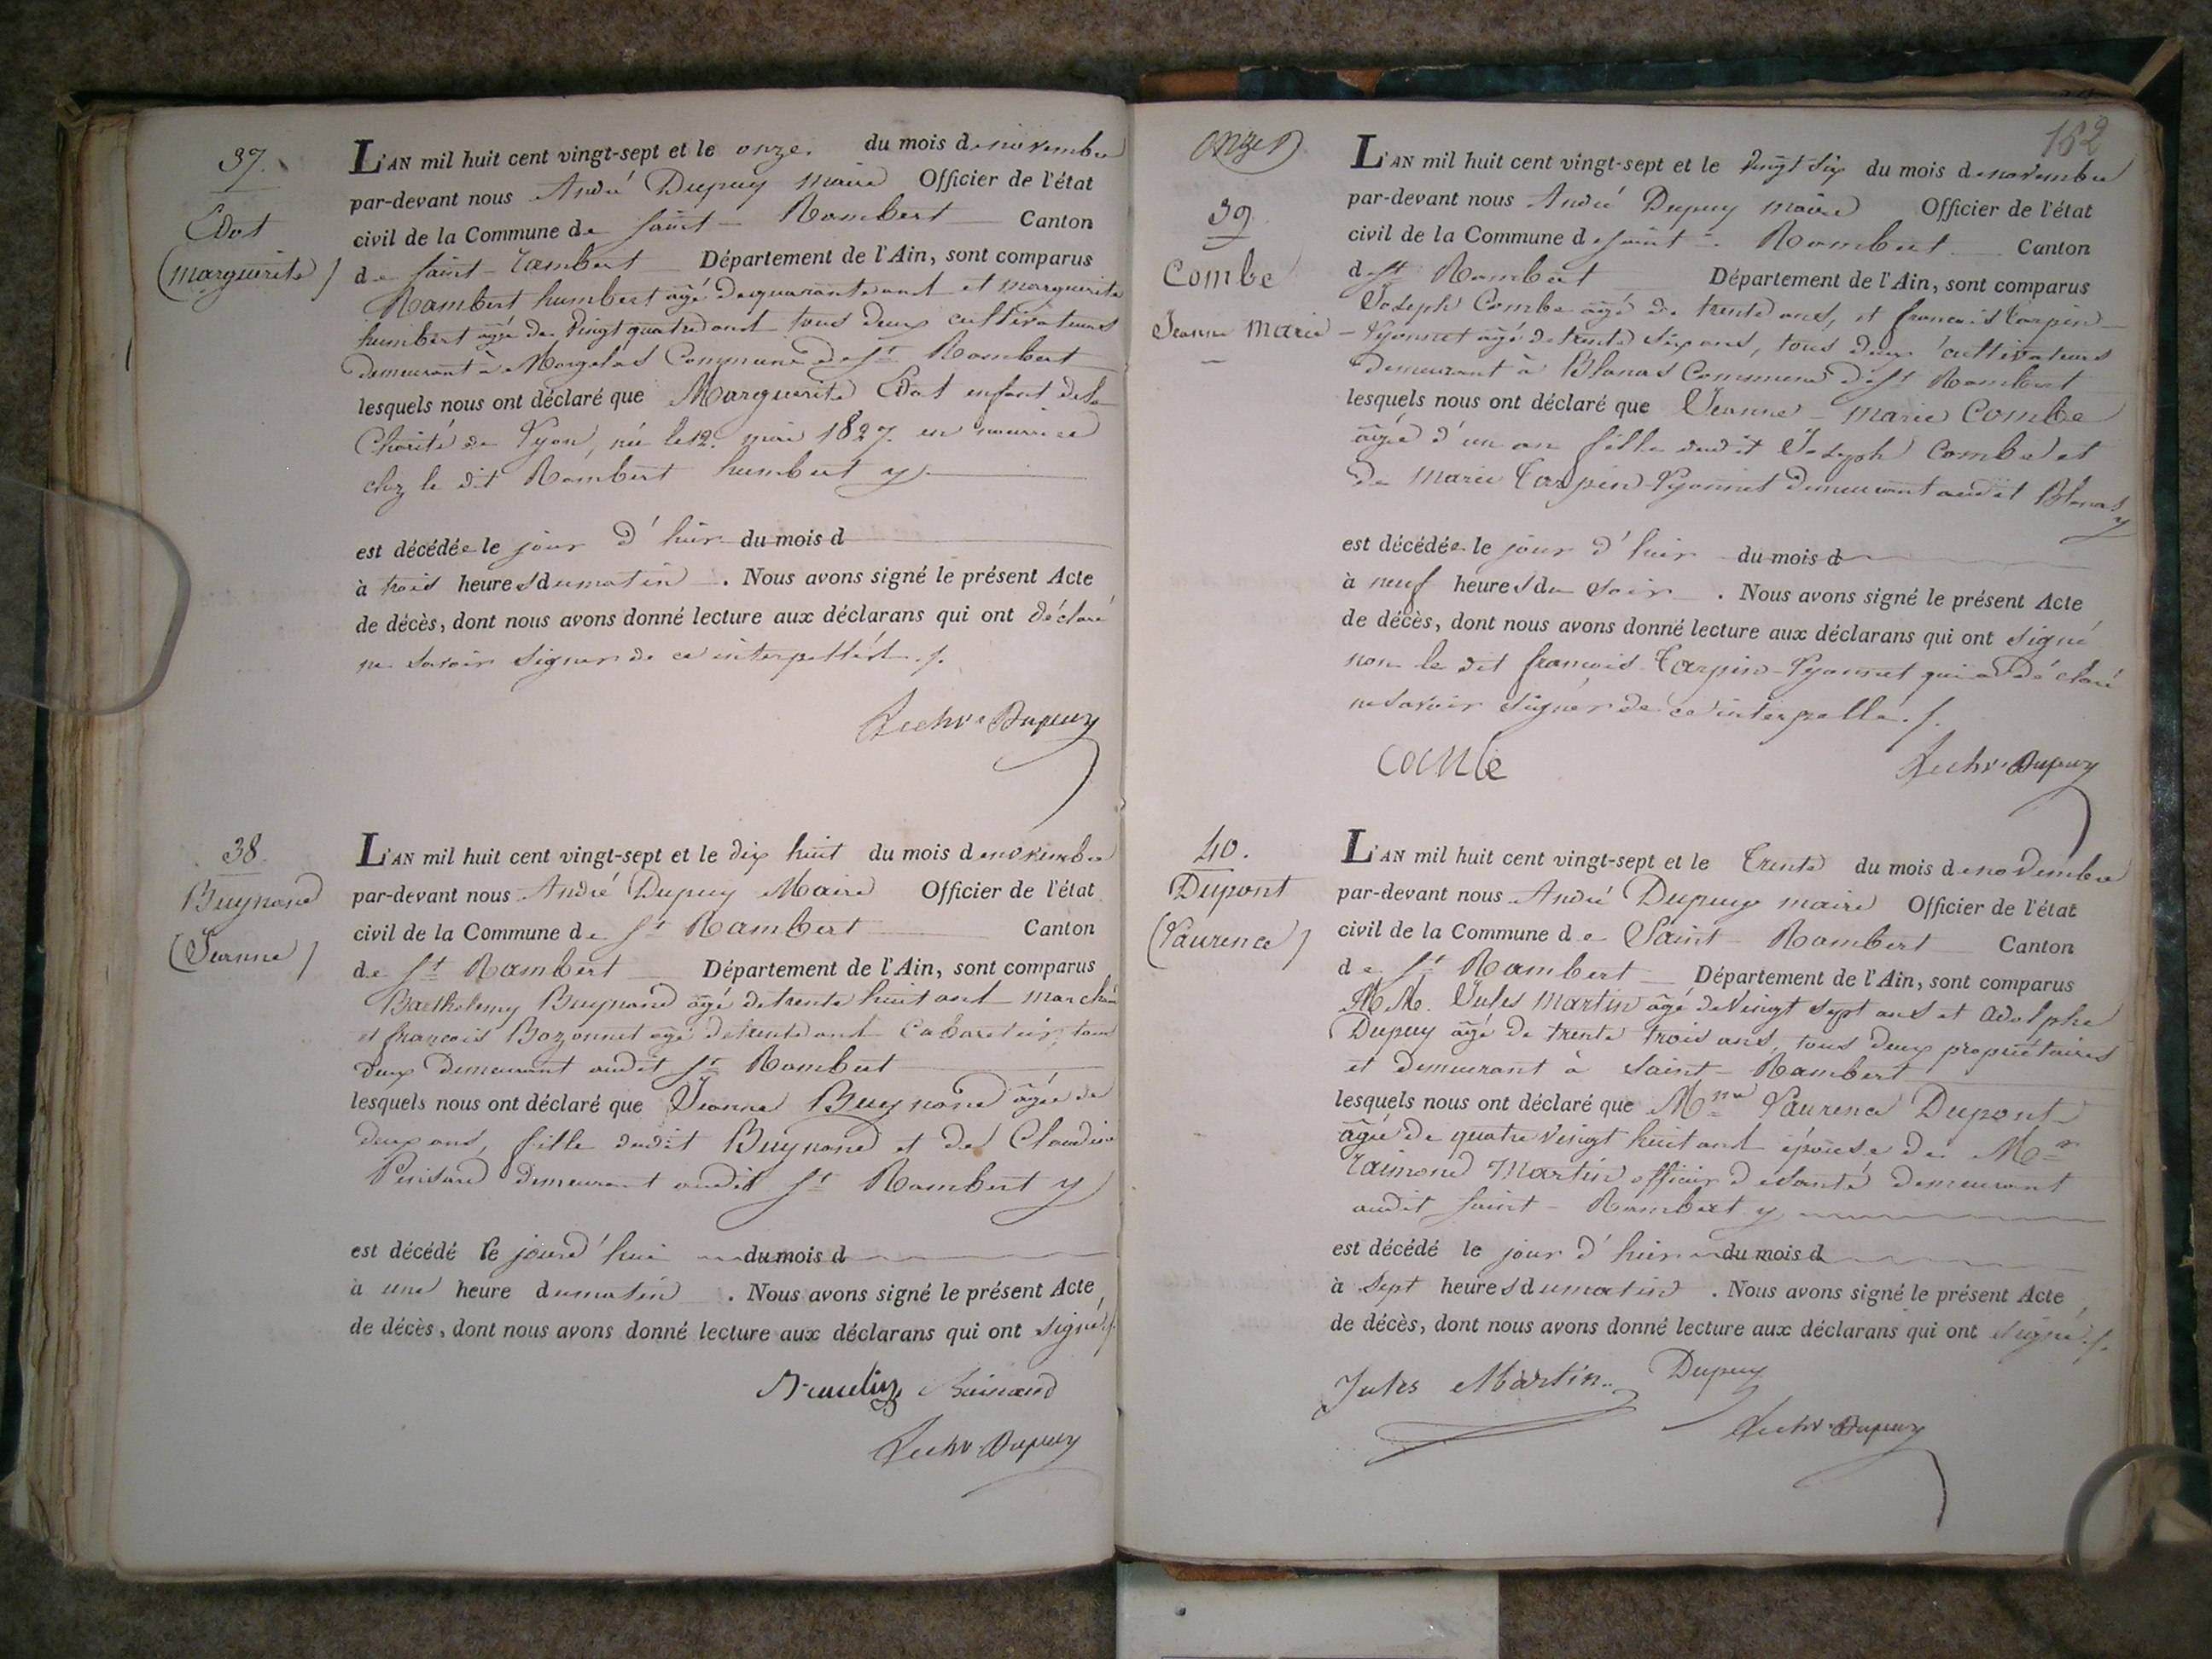 37.
Edot
(Marguerite)
L'AN mil huit cent vingt-sept et le onze. du mois de novembre
par-devant nous André Dupuy Maire Officier de l'état
civil de la Commune de Saint-Rambert Canton
de Saint-Rambert Département de l'Ain, sont comparus
Rambert humbert agé de quarante ans et Marguerite
humbert agée de vingt quatre ans tous deux cultivateurs
demeurant à Morgelas Commune de St Rambert
lesquels nous ont déclaré que Marguerite Edot enfant de la
Charité de Lyon, née le 12. mai 1827. en nourrice
chez le dit Rambert humbert y
est décédée le jour d'hier du mois d
à trois heures du matin. Nous avons signé le présent Acte
de décès, dont nous avons donné lecture aux déclarans qui ont déclaré
ne savoir signer de ce interpellés./.
Dupuy
38.
Buynand
(Jeanne)
L'AN mil huit cent vingt-sept et le dix huit du mois de novembre
par-devant nous André Dupuy Maire Officier de l'état
civil de la Commune de St Rambert Canton
de St Rambert Département de l'Ain, sont comparus
Barthelemy Buynand agé de trente huit ans marchand
et françois Bozonnet agé de trente ans Cabaretier, tous
deux demeurant audit St Rambert
lesquels nous ont déclaré que Jeanne Buynand âgée de
deux ans, fille dudit Buynand et de Claudine
demeurant audit St Rambert y
est décédé le jourd'hui du mois d
à une heure du matin. Nous avons signé le présent Acte
de décès, dont nous avons donné lecture aux déclarans qui ont signé./.
Buinand
Dupuy
162
onze
39.
Combe
Jeanne Marie
L'AN mil huit cent vingt-sept et le vingt six du mois de novembre
par-devant nous André Dupuy Maire Officier de l'état
civil de la Commune de Saint-Rambert Canton
de St Rambert Département de l'Ain, sont comparus
Joseph Combe agé de trente ans, et francois Carpin-
Lyonnet agé de trente six ans, tous deux cultivateurs
demeurant à Blanas Commune de St Rambert
lesquels nous ont déclaré que Jeanne-Marie Combe
âgée d'un an fille dudit Joseph Combe et
de Marie Carpin-Lyonnet demeurant audit Blanas y
est décédée le jour d'hier du mois d
à neuf heures du soir. Nous avons signé le présent Acte
de décès, dont nous avons donné lecture aux déclarans qui ont signé
non le dit françois Carpin-Lyonnet qui a déclaré
ne savoir signer de ce interpellé./.
Combe
Dupuy
40.
Dupont
(Laurence)
L'AN mil huit cent vingt-sept et le Trente du mois de novembre
par-devant nous André Dupuy maire Officier de l'état
civil de la Commune de Saint-Rambert Canton
de St Rambert Département de l'Ain, sont comparus
M.M. Jules Martin âgé de vingt sept ans et Adolphe
Dupuy âgé de trente trois ans, tous deux propriétaires
et demeurant à Saint-Rambert
lesquels nous ont déclaré que Mme Laurence Dupont
âgée de quatre vingt huit ans épouse de Mr
Raimond Martin officier de santé demeurant
audit Saint-Rambert y
est décédé le jour d'hier du mois d
à sept heures du matin. Nous avons signé le présent Acte
de décès, dont nous avons donné lecture aux déclarans qui ont signé./.
Jules Martin Dupuy
Dupuy